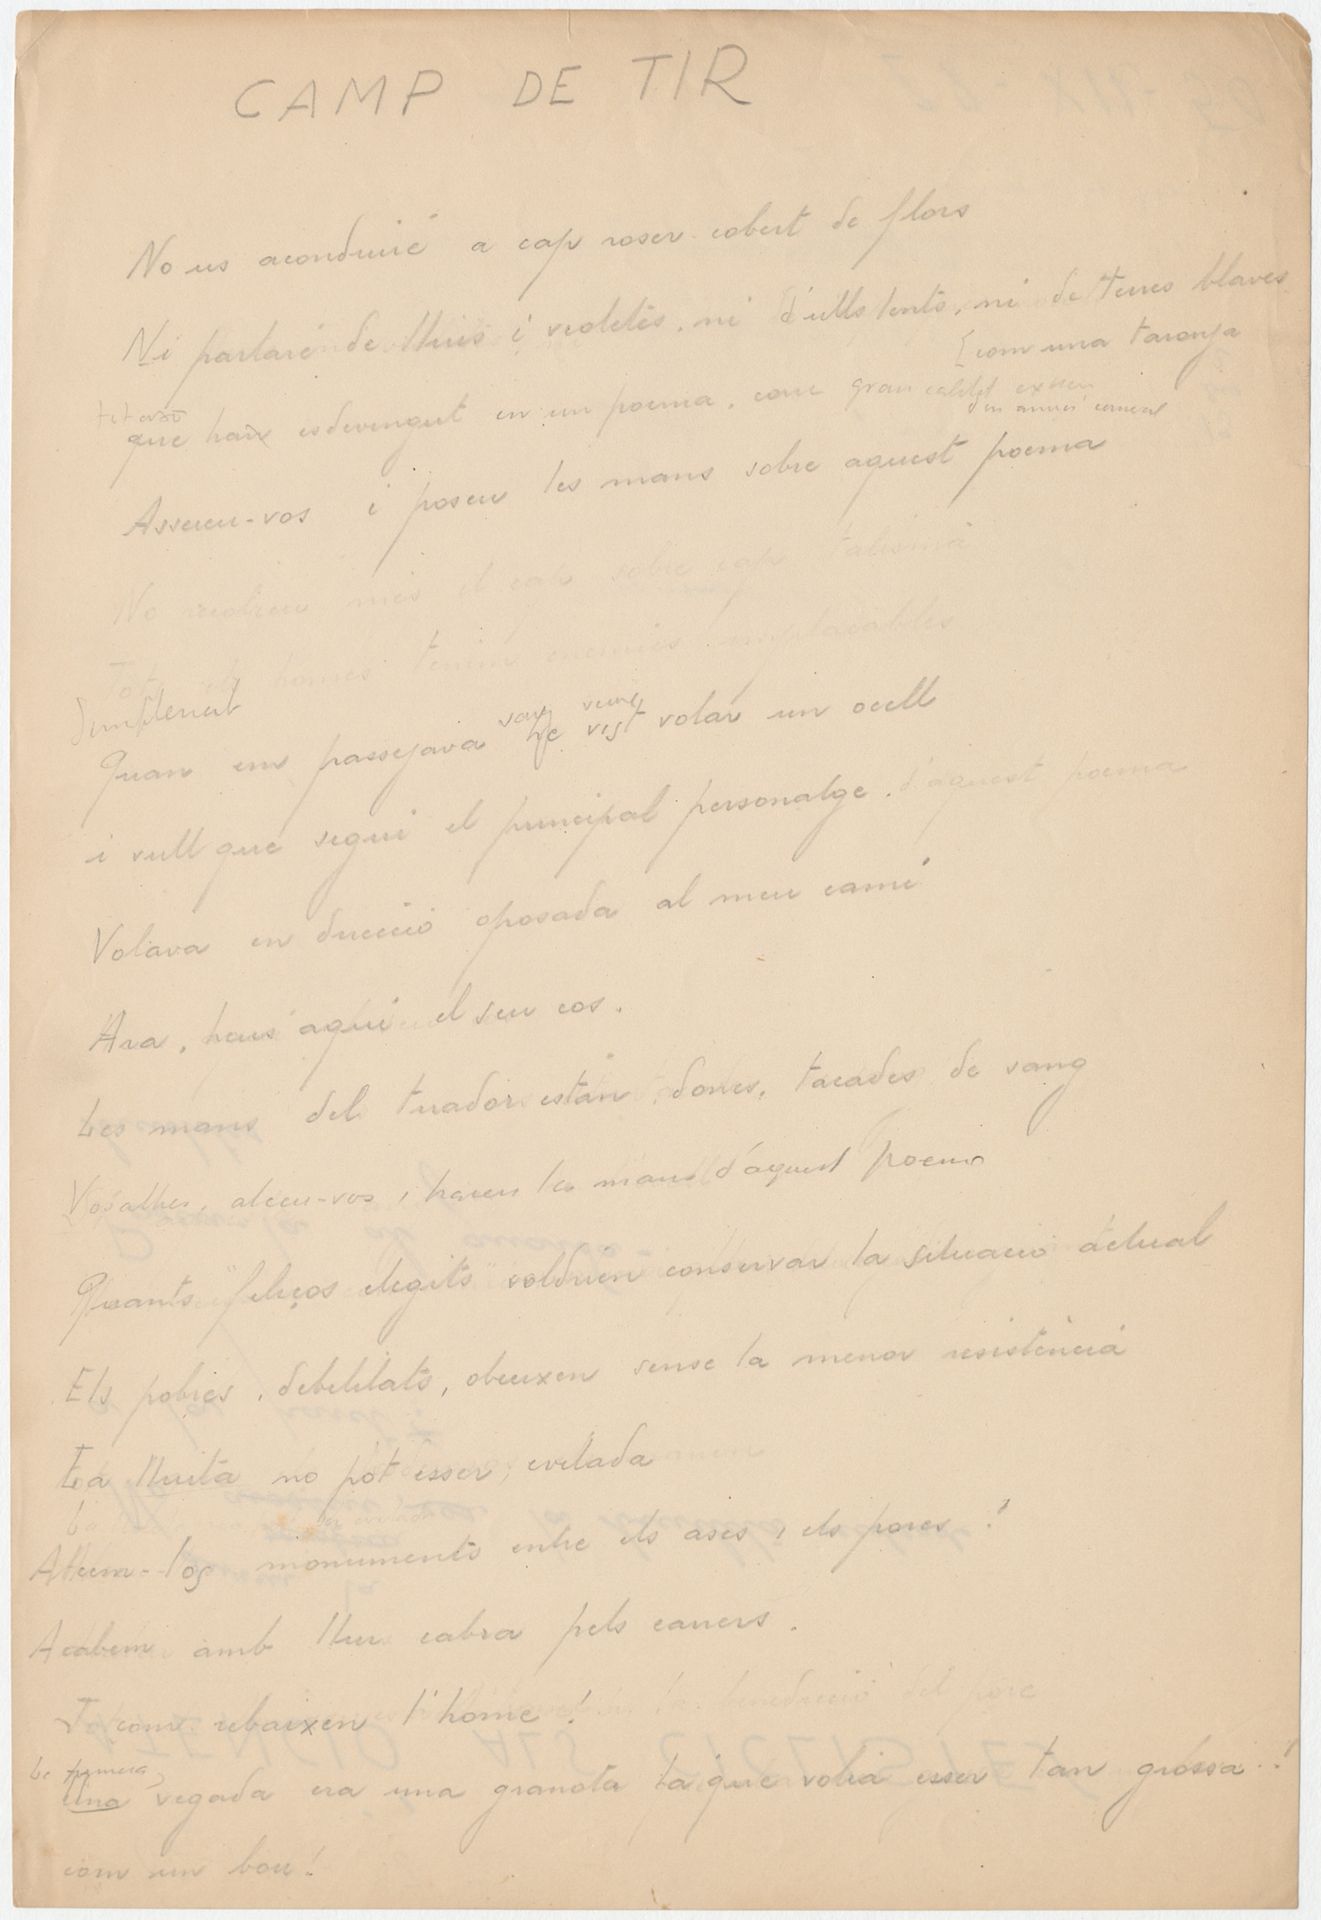 CAMP DE TIR
No us aconduiré a cap roser cobert de flors
Ni parlaré de lluis i violetes, ni d'ulls lents, ni de terres blaves
[com una taronja
que haix esdevingut en un poema, com gran
d'un anunci comercial
Asseieu-vos i poseu les mans sobre aquest poema
No recolzeu més el cap sobre cap talismà
Tots els homes tenim enemics implacables
Simplement
vaig veure
Quan em passejava he vist volar un ocell
i vull que sigui el principal personatge. d'aquest poema
Volava en direcció oposada al meu camí
Ara, heus aquí el seu cos.
Les mans del tirador están, doncs, tacades de sang
Vosaltres, alceu-vos i traieu les mans d'aquest poema
Quants "feliços elegits" voldrien conservar la situació actual
Els pobres, debilitats, obeeixen sense la menor resistència
La lluita no pot esser evitada
Alcem-los monuments entre els ases i els porcs!
Acabem amb llur cabra pels carrers.
Tal com rebaixen l'home!
La primera
Una vegada era una granota la que volia esser tan grossa!
com un bou!